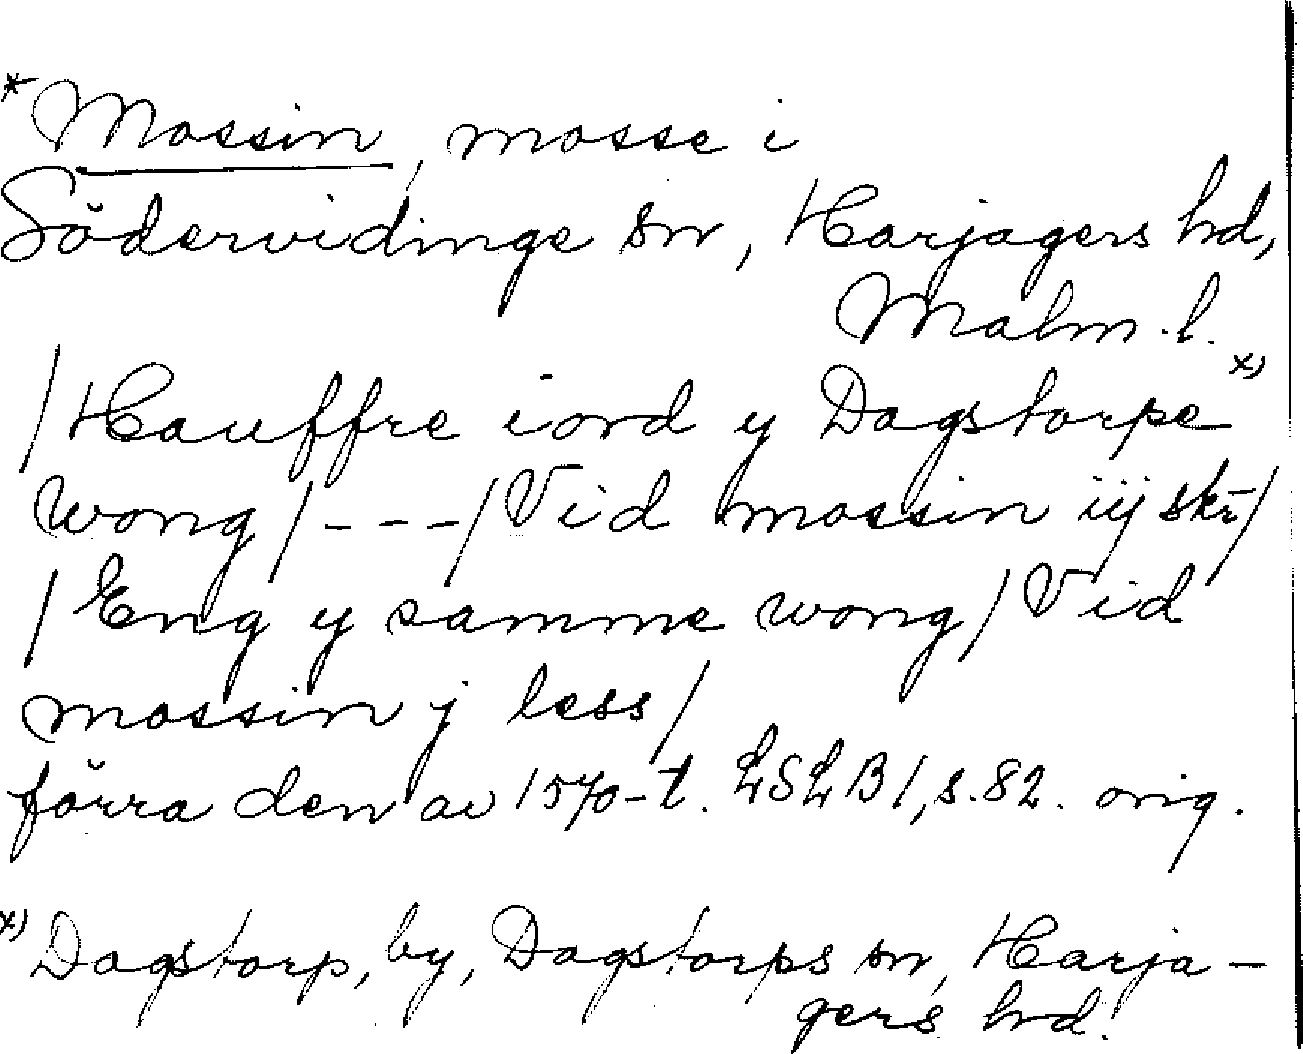 *Mossin, mosse i
Södervidinge sn, Harjagers hd,
Malm. l.
/Hauffre iord y Dagstorpe x)
wong/---/Vid mossin iij skr/
/Eng y samme wong/Vid
mossin j less/
förra den av 1570-t. LSLB 1, s. 82. orig.
x) Dagstorp, by, Dagstorps sn, Harja-
gers hd.